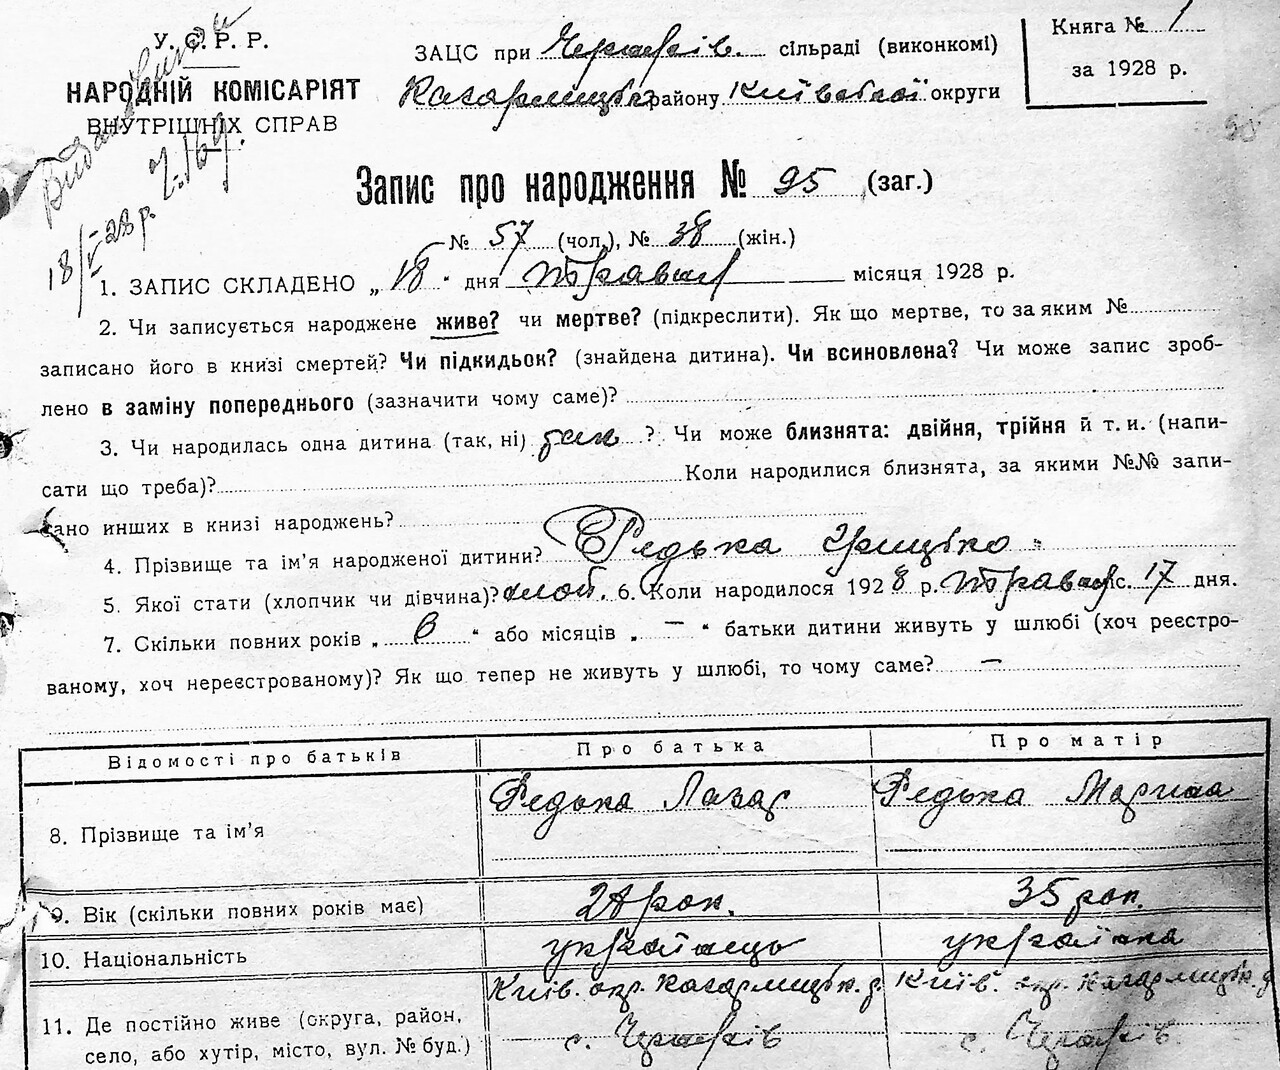 У. С. Р. Р.
НАРОДНІЙ КОМІСАРІЯТ
ВНУТРІШНІХ СПРАВ
18/V 28 р.
ЗАЦС при Черняхів. сільраді (виконкомі)
Кагарлицьк. району Київської округи
Книга № 1
за 1928 р.
Запис про народження № 95 (заг.)
№ 57 (чол.), № 38 (жін.)
1. ЗАПИС СКЛАДЕНО „ 18 “ дня травня місяця 1928 р.
2. Чи записується народжене живе? чи мертве? (підкреслити). Як що мертве, то за яким №
записано його в книзі смертей? Чи підкидьок? (знайдена дитина). Чи всиновлена? Чи може запис зроб-
лено в заміну попереднього (зазначити чому саме)?
3. Чи народилась одна дитина (так, ні) так ? Чи може близнята: двійня, трійня й т. и. (напи-
сати що треба)? Коли народилися близнята, за якими №№ запи-
сано инших в книзі народжень?
4. Прізвище та ім’я народженої дитини? Редька Грицько
5. Якої стати (хлопчик чи дівчина)? хлоп. 6. Коли народилося 1928 р. травня міс. 17 дня.
7. Скільки повних років „ 6 “ або місяців „ — “ батьки дитини живуть у шлюбі (хоч реєстро-
ваному, хоч нереєстрованому)? Як що тепер не живуть у шлюбі, то чому саме? —
Відомості про батьків Про батька Про матір
8. Прізвище та ім’я Редька Лазар Редька Марина
9. Вік (скільки повних років має) рок. 35 рок.
10. Національність українець українка
11. Де постійно живе (округа, район, Київ. окр. Кагарлицьк. р. Київ. окр. Кагарлицьк. р.
село, або хутір, місто, вул. № буд.) с. Черняхів с. Черняхів